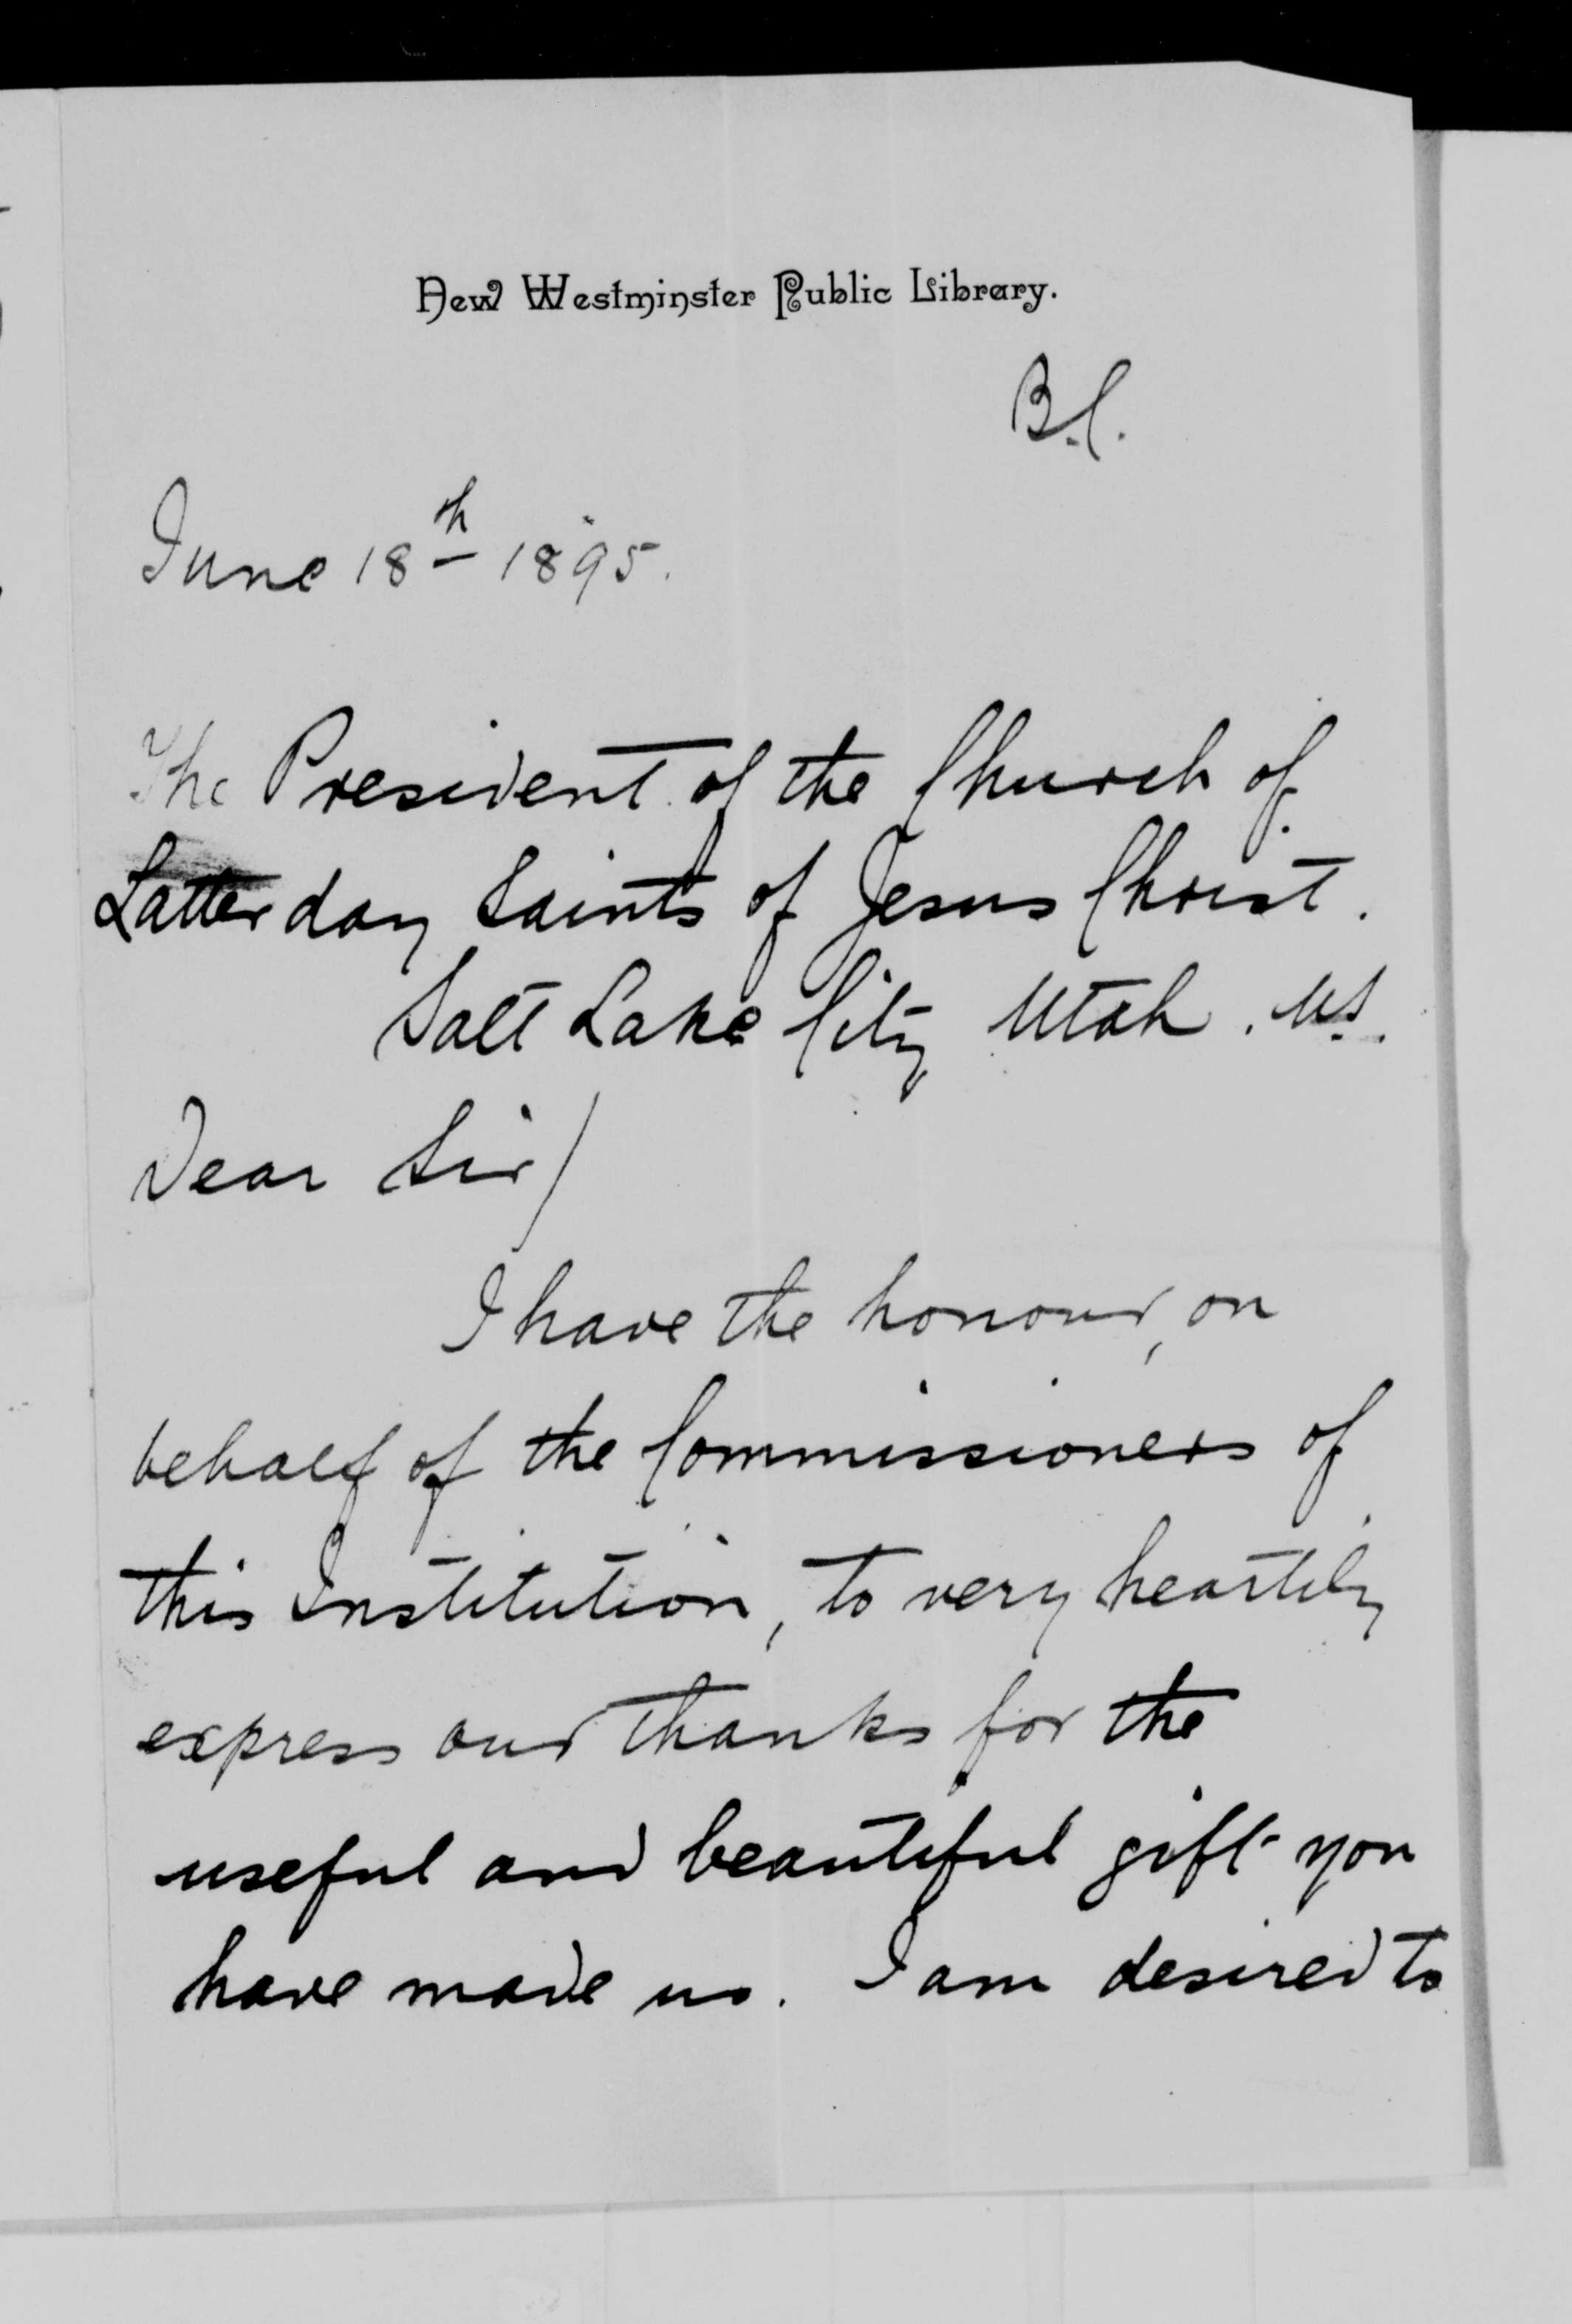 New Westminster Public Library.
B.C.
June 18th 1895.
The President of the Church of
Latter day Saints of Jesus Christ.
Salt Lake City Utah. U.S.
Dear Sir/
I have the honour, on
behalf of the Commissioners of
this Institution, to very heartily
express our thanks for the
useful and beautiful gift you
have made us. I am desired to